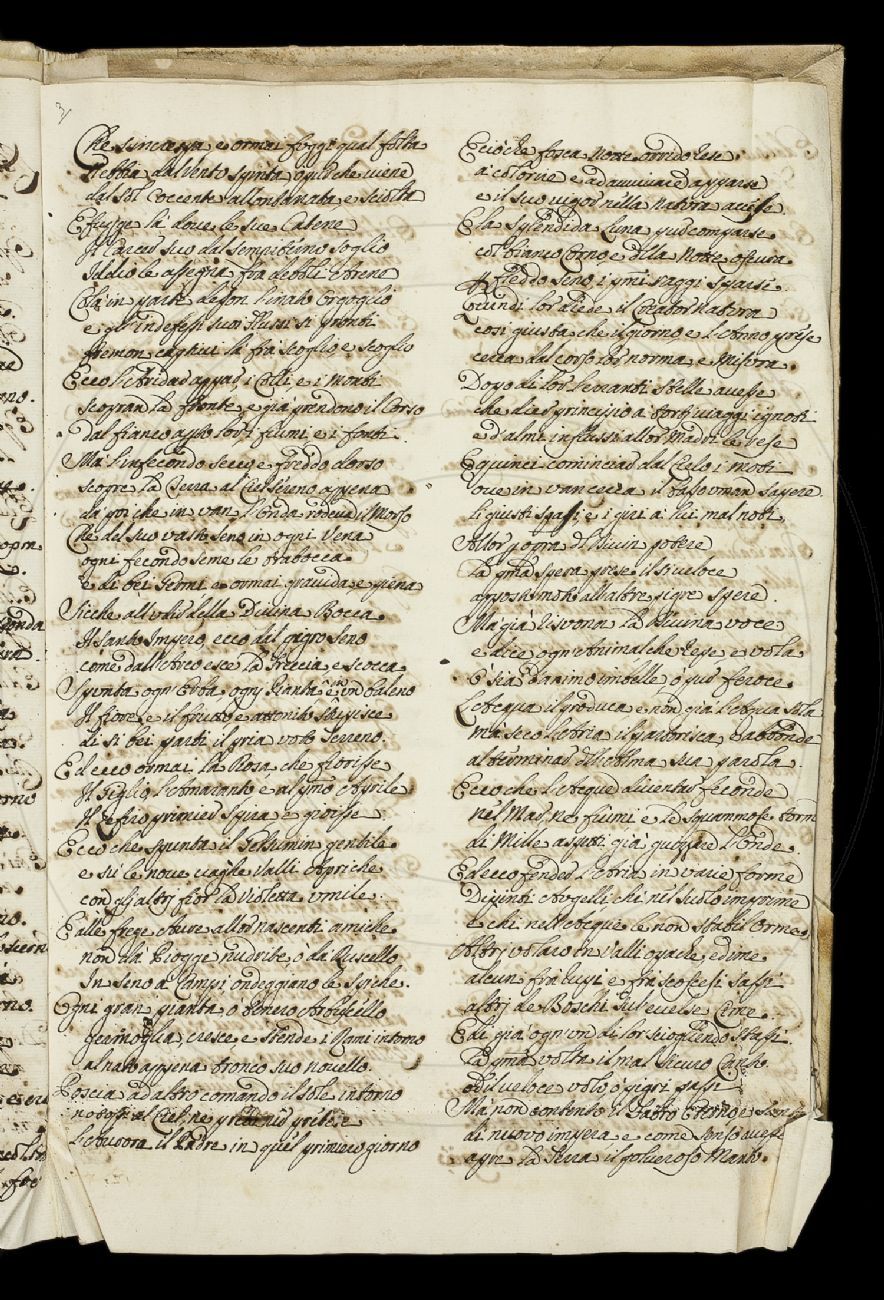 3
Che s'increspa e ormai fugge qual folta
Nebbia dal Vento spinta ogn'or che viene
dal Sol Cocente allontanata e sciolta
E fugge là dove le sue Catene
Il Carcer suo dal sempiterno soglio
Iddio le assegna fra debbili Arene
Colà in parte depon l'innato Orgoglio
e gl'indefessi suoi flussi si pronti
fremon cattivi là fra scoglio e scoglio
Ecco l'Arida appar i Colli e i Monti
scopron la fronte e già prendono il Corso
dal fianco aperto lor i fiumi e i fonti.
Ma l'infecondo seco e freddo dorso
scopre la Terra al Ciel sereno appena
da poi che in van l'Onda rodeva il Morso
Che del suo vasto seno in ogni Vena
ogni fecondo seme le trabocca
e di bei Germi e ormai gravida e piena
Sicche all'udir della Divina Bocca
Il santo Impero, ecco del pigro seno
come dall'Arco esce la Freccia e scocca
Spunta ogn'Erba ogni Pianta e in un baleno
Il fiore e il frutto e attonito stupisce
di si bei parti il pria voto Terreno.
Ed ecco ormai la Rosa, che fiorisce
Il Giglio, l'Amaranto e al primo Aprile
Il Zefiro primier spira e gioisce
Ecco che spunta il Gelsumin gentile
e su le nove vaghe Valli Apriche
con gl'altri fior la Violetta umile.
E alle fresche Aure allor nascenti amiche
non da Piogge nudrite, ò da Ruscello
In seno a Campi ondeggiano le spiche.
Ogni gran pianta ò tenero Arboscello
germoglia, cresce e stende i Rami intorno
al nato appena tronco suo novello.
Poscia ad altro comando il sole intorno
l'Aurora il Padre in quel primiero giorno
E ciò che fosca Notte orrido rese
a colorire e ad avvivare apparse
e il suo vigor nella natura accese
E la splendida Luna pur comparse
col bianco Corno e della Notte oscura
pel freddo seno i primi raggi sparse.
Quindi lor diede il Creator natura
cosi giusta che il giorno e l'Anno prese
certa dal corso lor norma e misura.
Dopo di lor le erranti stelle accese
che dier principio a torti viaggi ignoti
e d'almi influssi allor Madri le rese
E quinci cominciar dal Cielo i moti
ove in van cerca il basso uman sapere
li giusti spassi e i giri a lui mal noti.
Allor per opra del Divin potere
la prima spera prese il dì veloce
opposto moto all'altre pigre spere.
Ma già risuona la Divina voce
e dice ogn'Animal che repe e vola
ò sia d'animo imbelle ò pur feroce
L'Acqua il produca, e non già l'Acqua sola
ma seco l'Aria il partorisca, ed abbonde
al terminar dell'Alma sua parola.
Ecco che l'Acque diventar feconde
nel Mar, ne fiumi e le squammose torme
di Mille aspetti già guizzar l'Onde.
Ed ecco fender l'Aria in varie forme
Dipinti Augelli chi nel suolo imprime
e chi nell'Acque le non stabil Orme.
Altri volaro in Valli opache, ed ime
alcun fra bussi e fra scoscesi sassi
altri de Boschi sul'eccelse Cime.
E di già ogn'un di lor sciogliendo stassi
la prima volta il mal sicuro Canto
od il veloce volo ò pigri passi
Ma non contento il Fabro Eterno
di nuovo impera e come senso avesse
apre la Terra il polveroso Manto.